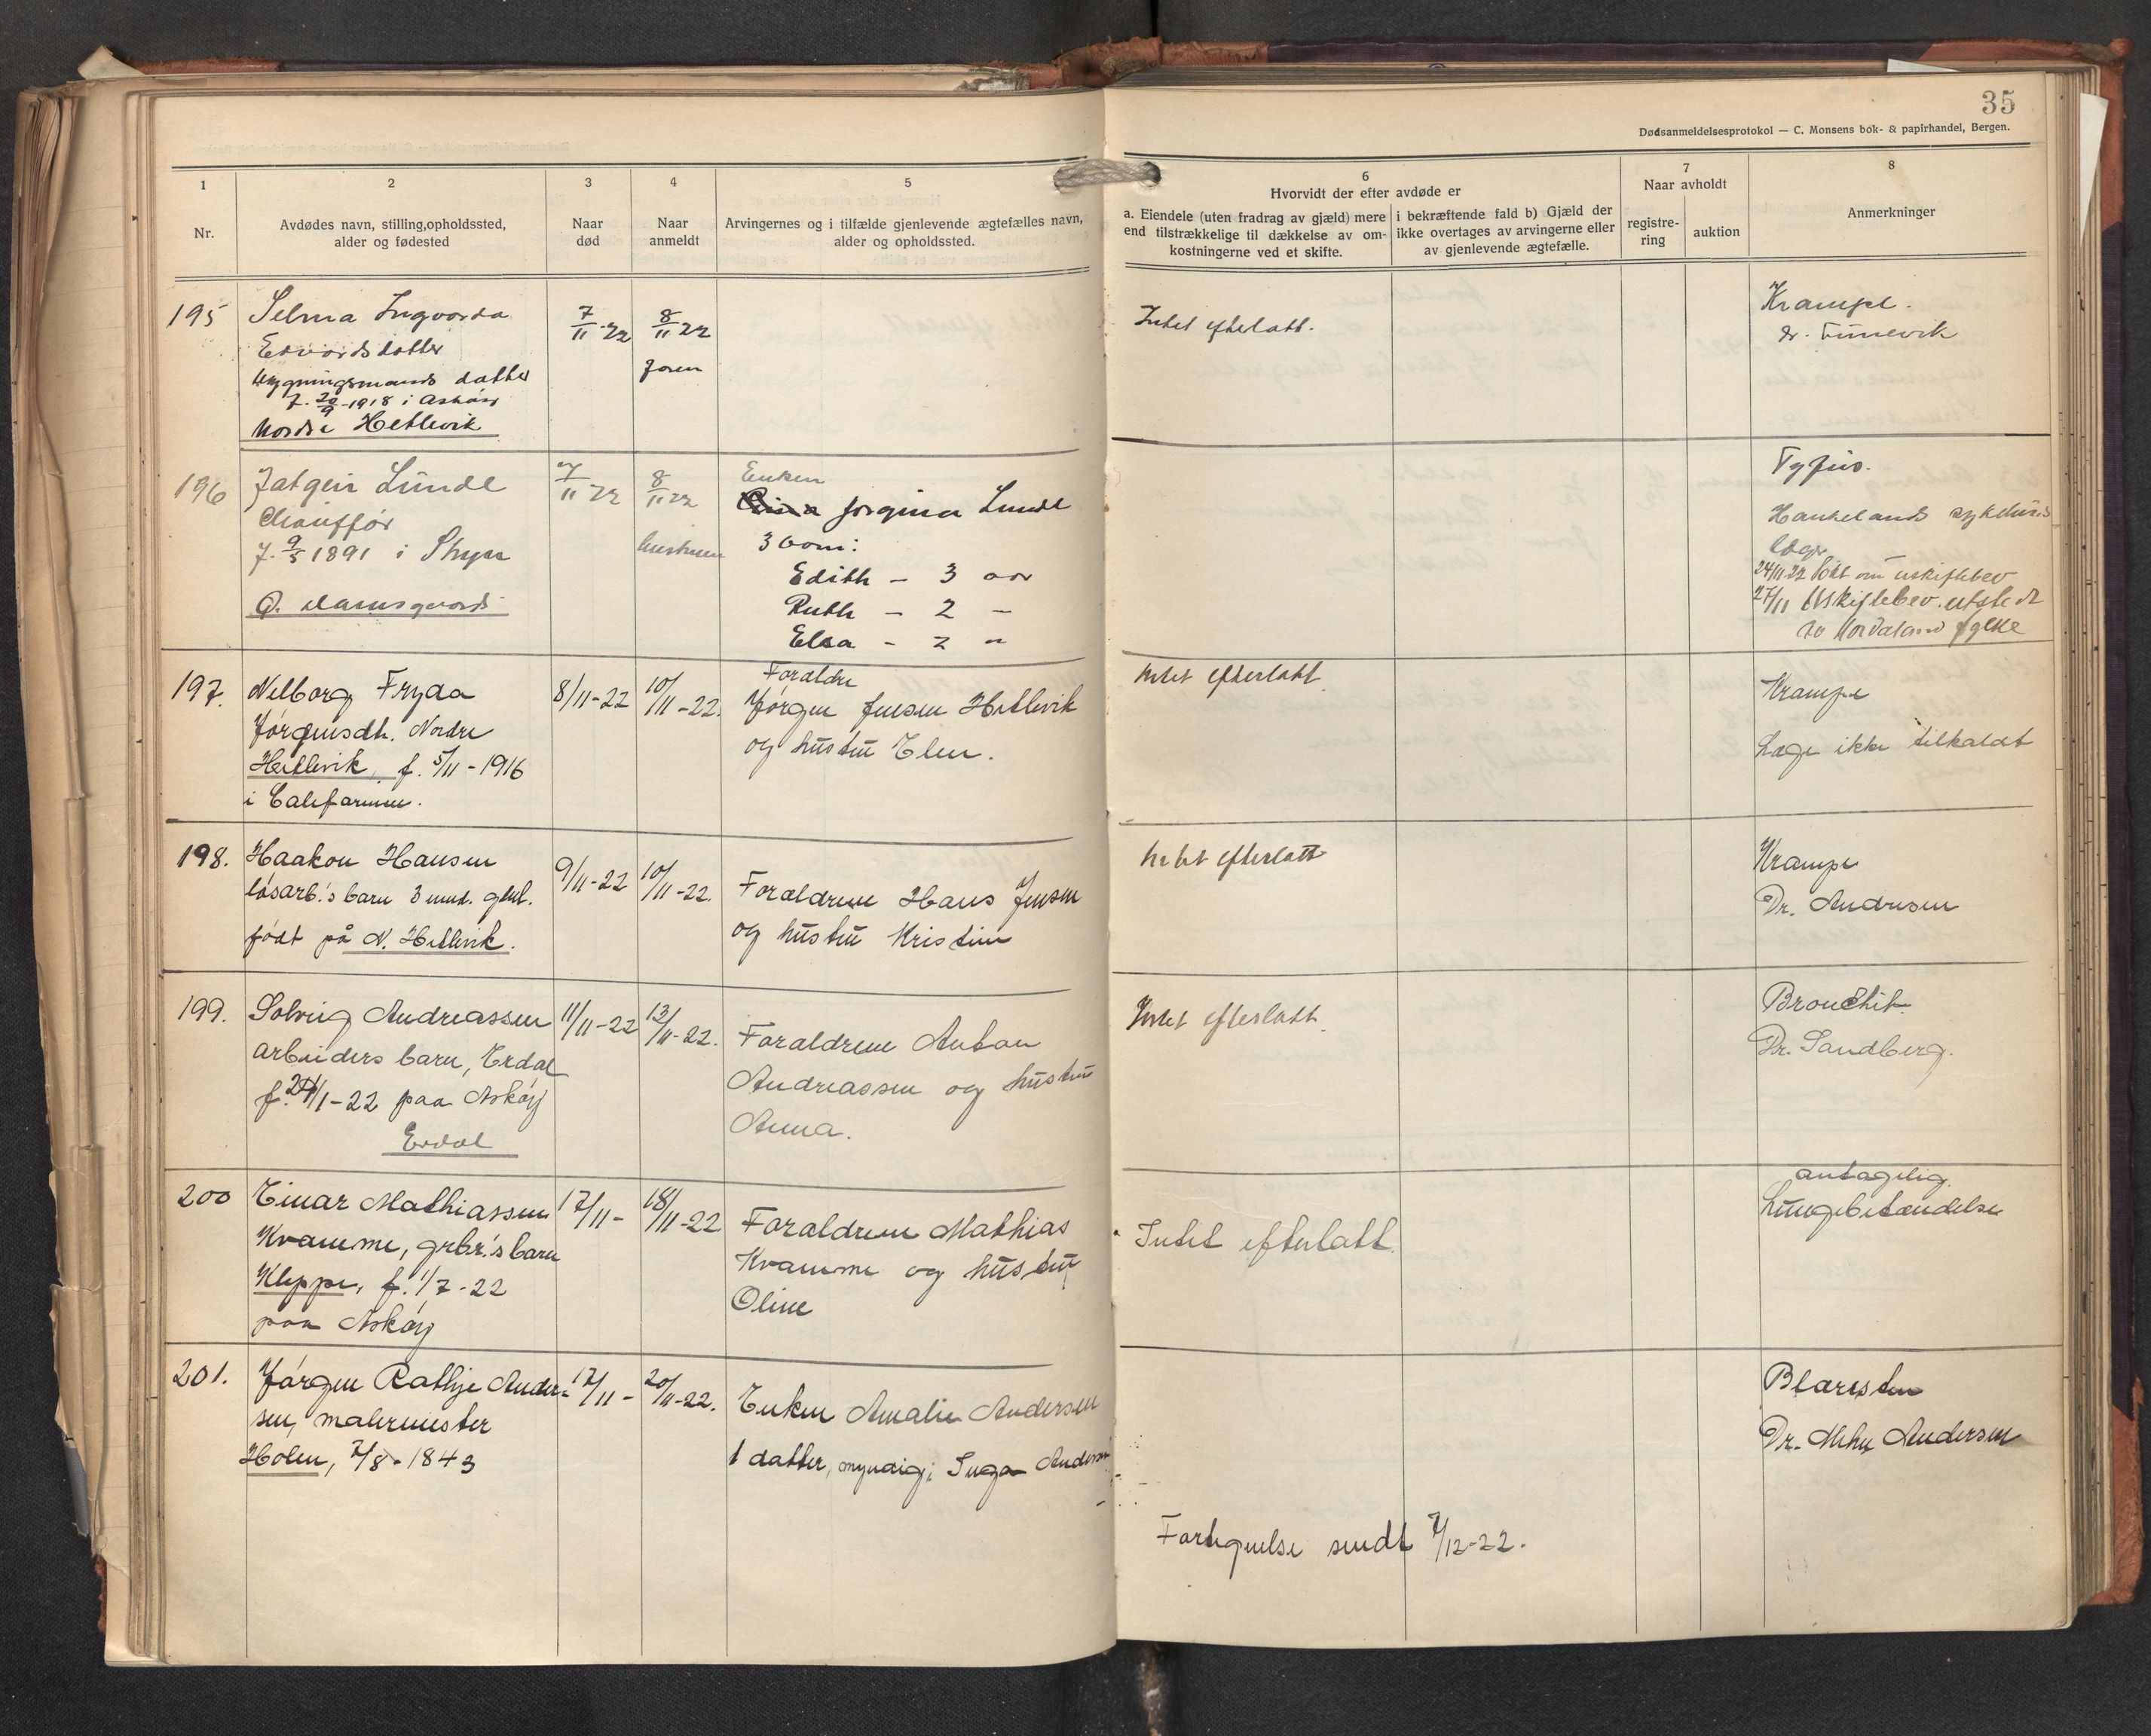 35
Dødsanmeldelsesprotokol — C. Monsens bok- & papirhandel, Bergen.
1
Nr.
2
Avdødes navn, stilling, opholdssted,
alder og fødested
3
Naar
død
4
Naar
anmeldt
5
Arvingernes og i tilfælde gjenlevende ægtefælles navn,
alder og opholdssted.
6
Hvorvidt der efter avdøde er
a. Eiendele (uten fradrag av gjæld) mere
end tilstrækkelige til dækkelse av om-
kostningerne ved et skifte.
i bekræftende fald b) Gjæld der
ikke overtages av arvingerne eller
av gjenlevende ægtefælle.
7
Naar avholdt
registre-
ring
auktion
8
Anmerkninger
195
Selma Ingvarda
Edvardsdatter
bygningsmands datter
f. 20/9-1918 i Askøy
Nordre Hetlevik
7/11-22
8/11 22
faren
Intet efterlatt.
Krampe.
dr. Finnevik
196
Jatgeir Lunde
Chauffør
f. 9/5 1891 i Stryn
Ø. Damsgaard
7/11-22
8/11 22
hustruen
Enken
Jorgina Lunde
3 barn:
Edith - 3 aar
Ruth - 2 -
Elsa - 2 "
Tyfus.
Haukelands sykehus
læge
24/11-22 søkt om uskiftebev
27/11 Uskiftebev. utstedt
av Hordaland fylke
197.
Nelborg Fryda
Jørgensdtr. Nordre
Hetlevik, f. 5/11-1916
i Californien.
8/11-22
10/11-22.
Foraldre
Jørgen Jensen Hetlevik
og hustru Elen.
Intet efterlatt
Krampe
Læge ikke tilkaldt
198.
Haakon Hansen
løsarb.'s barn 3 mnd. gml.
født på N. Hetlevik.
9/11-22
10/11-22.
Foraldrene Hans Jensen
og hustru Kristine
Intet efterlatt
Krampe
Dr. Andresen
199.
Solveig Andreassen
arbeiders barn, Erdal
f. 24/1-22 paa Askøy
Erdal
11/11-22
13/11-22.
Foraldrene Anton
Andreassen og hustru
Anna.
Intet efterlatt.
Bronchit
Dr. Sandberg.
200
Einar Mathiassen
Kvamme, grbr.'s barn
Kleppe, f. 1/7-22
paa Askøy
17/11-
18/11-22
Foraldrene Mathias
Kvamme og hustru
Oline
Intet efterlatt.
antagelig
Lungebetændelse
201.
Jørgen Rathje Ander-
sen, malermester
Holen, 7/8-1843
17/11-
20/11-22.
Enken Amalie Andersen
1 datter, myndig; Inga Andersen
Fortegnelse sendt 7/12-22.
Blæresten
Dr. Andersen